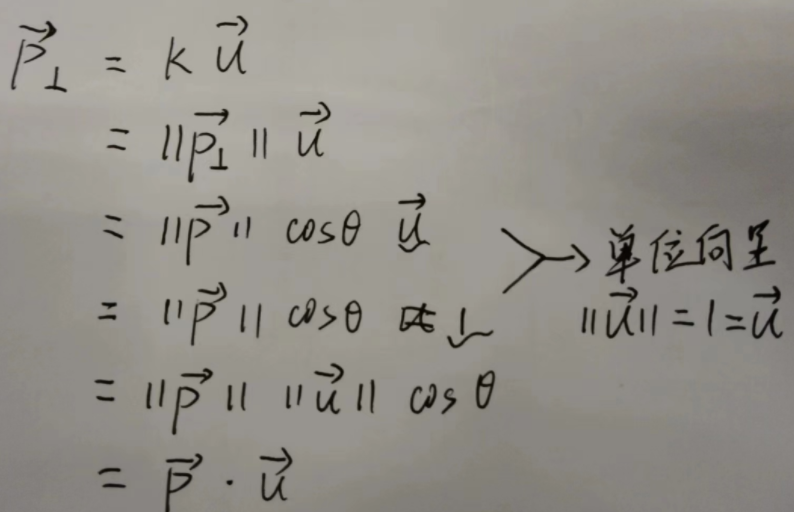 p⃗⊥ = k u⃗
= ||p⃗⊥|| u⃗
= ||p⃗|| cosθ u⃗
= ||p⃗|| cosθ 1
= ||p⃗|| ||u⃗|| cosθ
= p⃗ · u⃗
→ 单位向量
||u⃗|| = 1 = u⃗